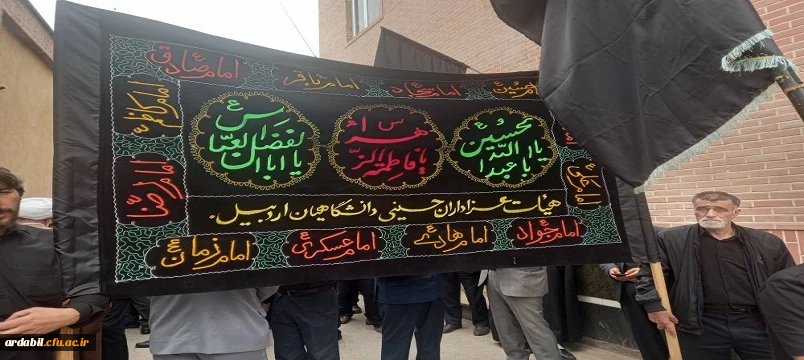 امام سجاد
امام باقر
امام صادق
امام کاظم
امام رضا
یا ابا عبدالله الحسین
یا فاطمة الزهرا
یا اباالفضل العباس
هیأت عزاداران حسینی دانشگاهیان اردبیل.
امام جواد
امام هادی
امام عسکری
امام زمان
ardabil.cfu.ac.ir